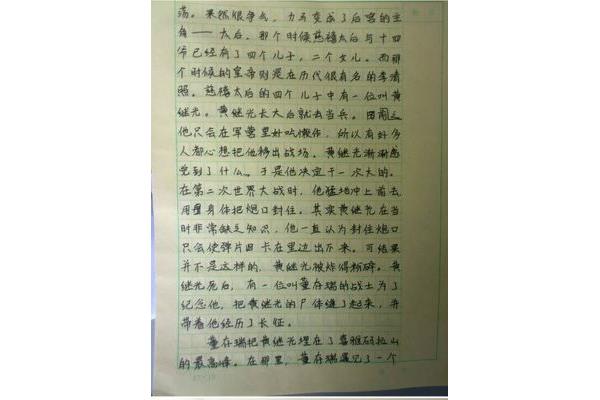 荡。果然很争气,力马变成了后宫的主
角——太后。那个时候慈禧太后与十四
爷已经有了四个儿子,二个女儿。而那
个时候的皇帝则是在历代很有名的李清
照。慈禧太后的四个儿子中有一位叫黄
继光。黄继光长大后就去当兵。因
他只会在军营里好吃懒作,所以有好多
人都心想把他移出战场。黄继光渐渐感
觉到了什么。于是他决定干一次大的。
在第二次世界大战时,他猛地冲上前去
用 身体把炮口封住。其实黄继光在当
时非常缺乏知识,他一直认为封住炮口
只会使弹片 卡在里边出不来。可结果
并不是这样的,黄继光被炸得粉碎。黄
继光死后,有一位叫董存瑞的战士为了
纪念他,把黄继光的尸体缝了起来,并
带着他经历了长征。
董存瑞把黄继光埋在了喜雅码拉山
的最高峰。在那里,董存瑞遇见了一个